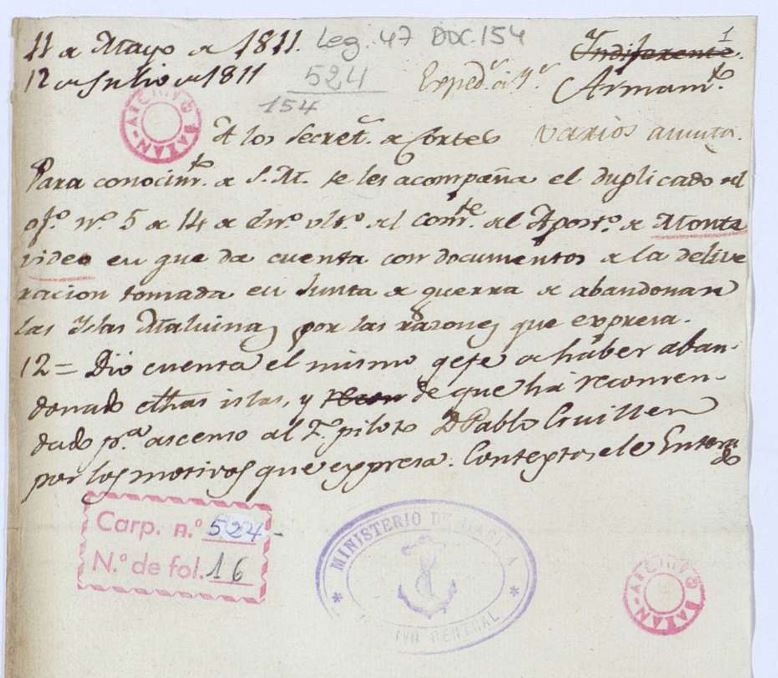 11 de Mayo de 1811. Leg. 47 DOC. 154 1
Indiferente.
12 de Julio de 1811 524 Exped.s a Yn.s Armam.to
154
A los Secret.s de Cortes varios asunta.
Para conocim.to de S.M. se les acompaña el duplicado del
of.o n.o 5 de 14 de En.o ult.o del Com.te del Apost.o de Monte
video en que da cuenta con documentos de la delive
racion tomada en Junta de guerra de abandonar
las Yslas Malvinas por las razones que expresa.
12 = Dió cuenta el mismo gefe de háber aban-
donado dthas islas, y de que há recomen-
dado p.a ascenso al 2.o piloto D. Pablo Guillen
por los motivos que expresa. Contextosele Enterado
Carp. n.o 524-
N.o de fol. 16
MINISTERIO DE MARINA
ARCHIVO GENERAL
ARCHIVO
BAZAN
ARCHIVO
BAZAN